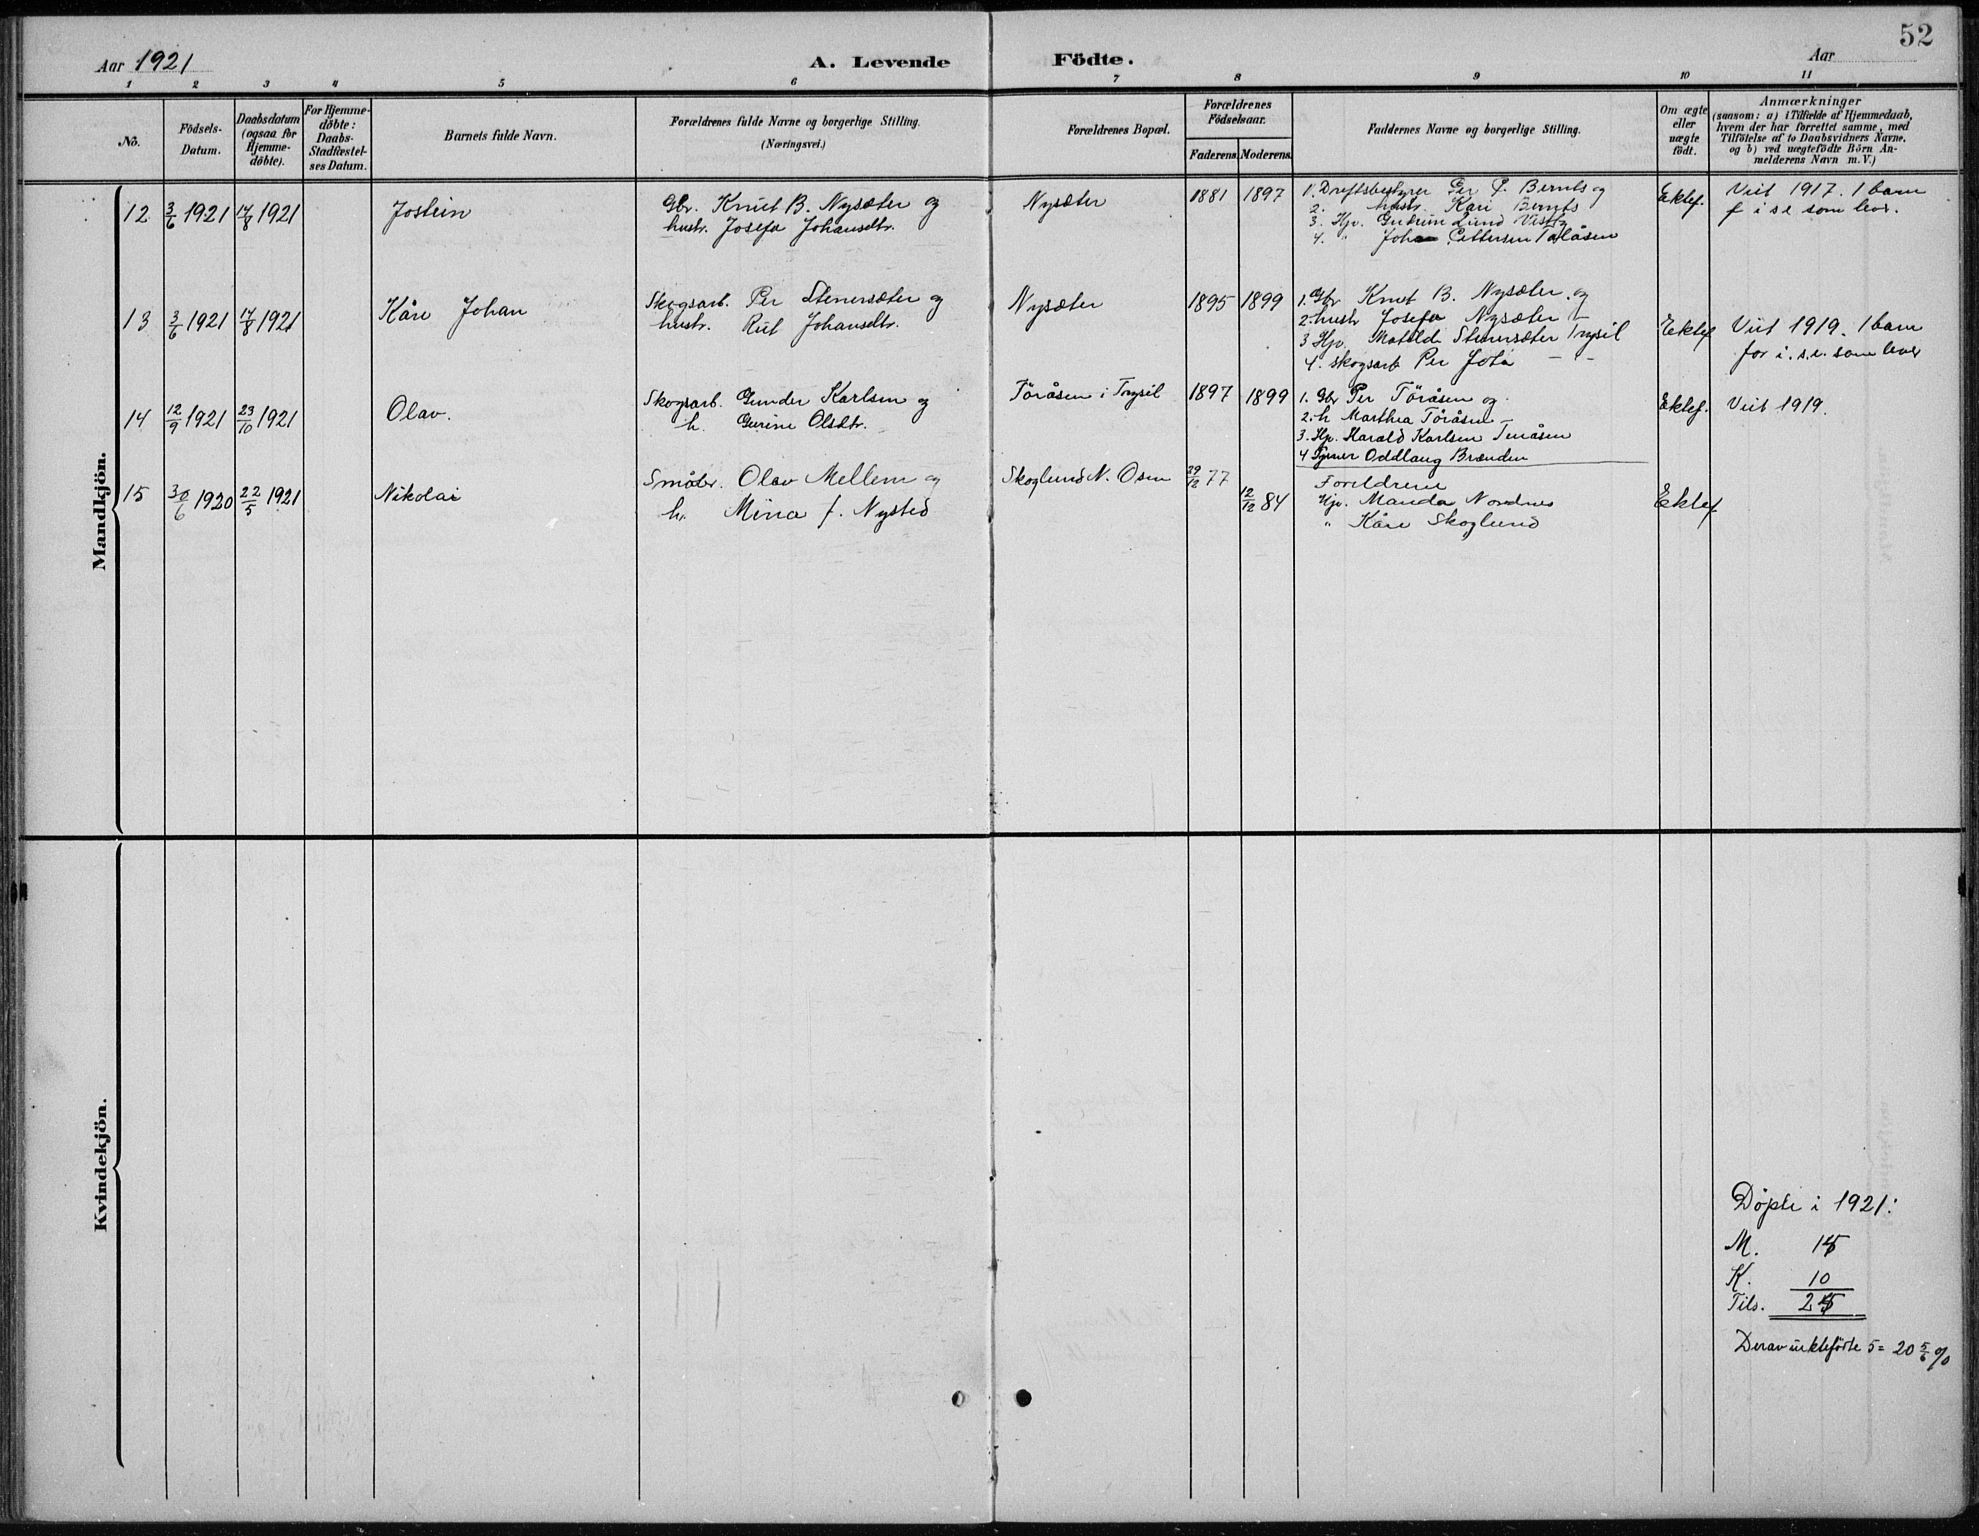 52
Aar 1921
A. Levende Födte.
Aar
1 2 3 4 5 6 7 8 9 10 11
No.
Födsels-Datum.
Daabsdatum (ogsaa for Hjemme-döbte).
For Hjemme-döbte: Daabs-Stadfæstel-ses Datum.
Barnets fulde Navn.
Forældrenes fulde Navne og borgerlige Stilling.
(Næringsvei.)
Forældrenes Bopæl.
Forældrenes Födselsaar.
Faderens. Moderens.
Faddernes Navne og borgerlige Stilling.
Om ægte eller uægte födt.
Anmærkninger
(saasom: a) i Tilfælde af Hjemmedaab,
hvem der har forrettet samme, med
Tilföielse af to Daabsvidners Navne.
og b) ved uægtefödte Börn An-
melderens Navn m. V.)
Mandkjön.
12 3/6 1921 14/8 1921 Jostein
Gbr. Knut B. Nysæter og
hustr. Josefa Johansdtr.
Nysæter 1881 1897
1. Driftsbestyrer Per P. Bernts og
2. hustr. Kari Bernts
3. Hp. Gudrun Lund
4. " Pettersen
Ektef.
Viet 1917. 1 barn
f i s e som lever.
13 3/6 1921 14/8 1921 Kåre Johan
Skogsarb. Per Stenersæter og
hustr. Rut Johansdtr.
Nysæter 1895 1899
1. Gbr Knut B. Nysæter og
2. hustr Josefa Nysæter —
3 Hp. Matild Stenersæter Trysil
4. skogsarb Per Jota — -
Ektef
Viet 1919. 1 barn
før i. s.e. som lever
14 12/9 1921 23/10 1921 Olav.
Skogsarb. Gunder Karlsen og
h. Gurine Olsdtr.
Töråsen i Trysil 1897 1899
1. Gbr Per Töråsen og
2. h Marthea Töråsen —
3. Hp. Harald Karlsen
4 Oddlaug Brænden
Ektef. Viet 1919.
15 30/6 1920 22/5 1921 Nikolai
Småbr. Olav Mellem og
h. Mina f. Nysted
Skoglund N. Osen 29/12 77 12/12 84
Foreldrene
Hp. Manda Nordnes
" Kåre Skoglund
Ektef
Kvindekjön.
Døpte i 1921:
M. 15
K. 10
Tils. 25
Derav uektefödte 5 = 20 5/6 %